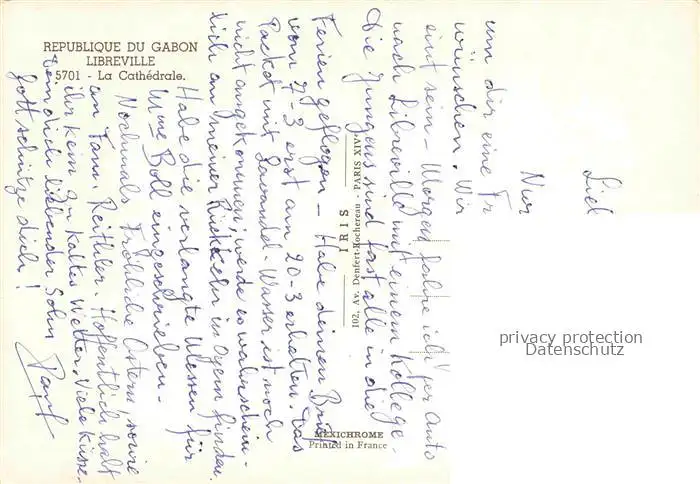 REPUBLIQUE DU GABON
LIBREVILLE
5701 - La Cathédrale.
IRIS
102, Av. Denfert-Rochereau - PARIS XIVe
MEXICHROME
Printed in France
privacy protection
Datenschutz
Lieb
Nur
um dir eine Fr
wünschen. Wir
eint sein - Morgen fahre ich per Auto
nach Libreville mit einem Kollege -
Die Jungens sind fast alle in die
Ferien geflogen - Habe deinen Brief
vom 7-3 erst am 20-3 erhalten. Das
Packet mit Lavandel-Wasser ist noch
nicht angekommen; werde es wahrschein-
lich an meiner Rückkehr in Oyem finden.
Habe die verlangte Messen für
Mme Boll eingeschrieben -
Nochmals Fröhliche Ostern, sowie
an Fam. Reithler. Hoffentlich habt
ihr kein zu kaltes Wetter. Viele Küsse
dein dich liebender Sohn
Gott schütze dich!